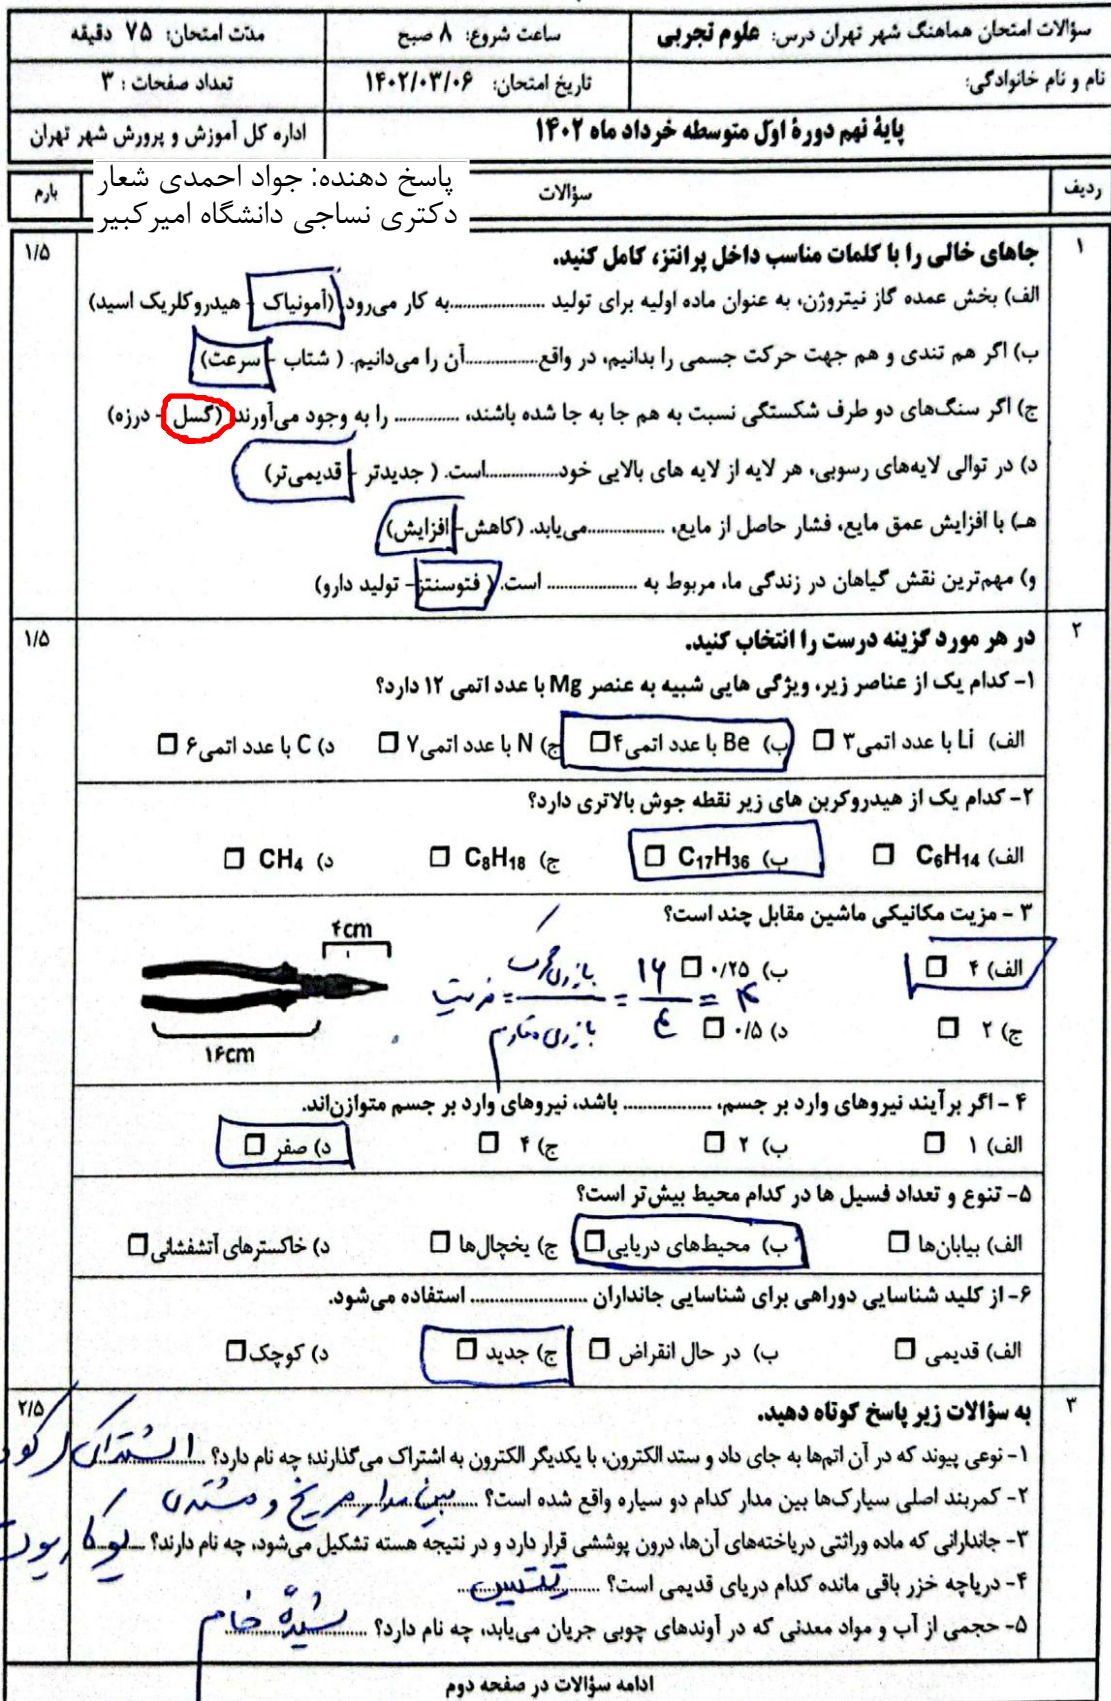 سؤالات امتحان هماهنگ شهر تهران درس: علوم تجربی
ساعت شروع: ۸ صبح
مدّت امتحان: ۷۵ دقیقه
نام و نام خانوادگی:
تاریخ امتحان: ۱۴۰۲/۰۳/۰۶
تعداد صفحات : ۳
پایۀ نهم دورۀ اوّل متوسطه خرداد ماه ۱۴۰۲
اداره کل آموزش و پرورش شهر تهران
پاسخ دهنده: جواد احمدی شعار
دکتری نساجی دانشگاه امیرکبیر
ردیف
سؤالات
بارم
۱
جاهای خالی را با کلمات مناسب داخل پرانتز، کامل کنید.
۱/۵
الف) بخش عمده گاز نیتروژن، به عنوان ماده اولیه برای تولید ....................به کار می‌رود. (آمونیاک - هیدروکلریک اسید)
ب) اگر هم تندی و هم جهت حرکت جسمی را بدانیم، در واقع...............آن را می‌دانیم. ( شتاب - سرعت)
ج) اگر سنگ‌های دو طرف شکستگی نسبت به هم جا به جا شده باشند، .............. را به وجود می‌آورند. (گسل - درزه)
د) در توالی لایه‌های رسوبی، هر لایه از لایه های بالایی خود................است. ( جدیدتر - قدیمی‌تر)
هـ) با افزایش عمق مایع، فشار حاصل از مایع، .................می‌یابد. (کاهش- افزایش)
و) مهم‌ترین نقش گیاهان در زندگی ما، مربوط به ................... است. ( فتوسنتز- تولید دارو)
۲
در هر مورد گزینه درست را انتخاب کنید.
۱/۵
۱- کدام یک از عناصر زیر، ویژگی هایی شبیه به عنصر Mg با عدد اتمی ۱۲ دارد؟
الف) Li با عدد اتمی۳ □ ب) Be با عدد اتمی۴ □ ج) N با عدد اتمی۷ □ د) C با عدد اتمی۶ □
۲- کدام یک از هیدروکربن های زیر نقطه جوش بالاتری دارد؟
الف) C6H14 □ ب) C17H36 □ ج) C8H18 □ د) CH4 □
۳ - مزیت مکانیکی ماشین مقابل چند است؟
۴cm
الف) ۴ □ ب) ۰/۲۵ □
ج) ۲ □ د) ۰/۵ □
مزیت = بازوی محرک / بازوی مقاوم = ۱۶ / ۴ = ۴
۱۶cm
۴ - اگر برآیند نیروهای وارد بر جسم، ................. باشد، نیروهای وارد بر جسم متوازن‌اند.
الف) ۱ □ ب) ۲ □ ج) ۴ □ د) صفر □
۵- تنوع و تعداد فسیل ها در کدام محیط بیش‌تر است؟
الف) بیابان‌ها □ ب) محیط‌های دریایی □ ج) یخچال‌ها □ د) خاکسترهای آتشفشانی □
۶- از کلید شناسایی دوراهی برای شناسایی جانداران ...................... استفاده می‌شود.
الف) قدیمی □ ب) در حال انقراض □ ج) جدید □ د) کوچک □
۳
به سؤالات زیر پاسخ کوتاه دهید.
۲/۵
۱- نوعی پیوند که در آن اتم‌ها به جای داد و ستد الکترون، با یکدیگر الکترون به اشتراک می‌گذارند؛ چه نام دارد؟ اشتراکی
۲- کمربند اصلی سیارک‌ها بین مدار کدام دو سیاره واقع شده است؟ بین مدار مریخ و مشتری
۳- جاندارانی که ماده وراثتی دریاخته‌های آن‌ها، درون پوششی قرار دارد و در نتیجه هسته تشکیل می‌شود، چه نام دارند؟ یوکاریوت
۴- دریاچه خزر باقی مانده کدام دریای قدیمی است؟ تتیس
۵- حجمی از آب و مواد معدنی که در آوندهای چوبی جریان می‌یابد، چه نام دارد؟ شیرۀ خام
ادامه سؤالات در صفحه دوم